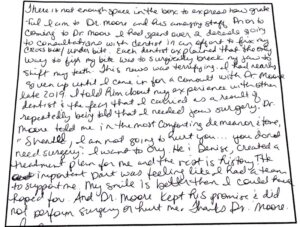 There is not enough space in the box to express how grate
ful I am to Dr. Moore and his amazing staff. Prior to
coming to Dr. Moore I had spent over a decade going
to consultations with dentist in an effort to fix my
cross bite/under bite. Each dentist explained that the only
way to fix my bite was to surgically break my jaw and
shift my teeth. This news was terrifying. I had nearly
given up until I came in for a consult with Dr. Moore
late 2019. I told him about my experience with other
dentist & the fear that I carried as a result of
repeatedly being told that I needed jaw surgery. Dr.
Moore told me in the most comforting demeanor & tone,
I am not going to hurt you... you do not
need surgery. I want to Cry. He & Denise, created a
treatment plan for me and the rest is history. The
important part was feeling like I had a team
to support me. My smile is better than I could have
hoped for. And Dr. Moore kept his promise & did
not perform surgery or hurt me. Thanks Dr. Moore.